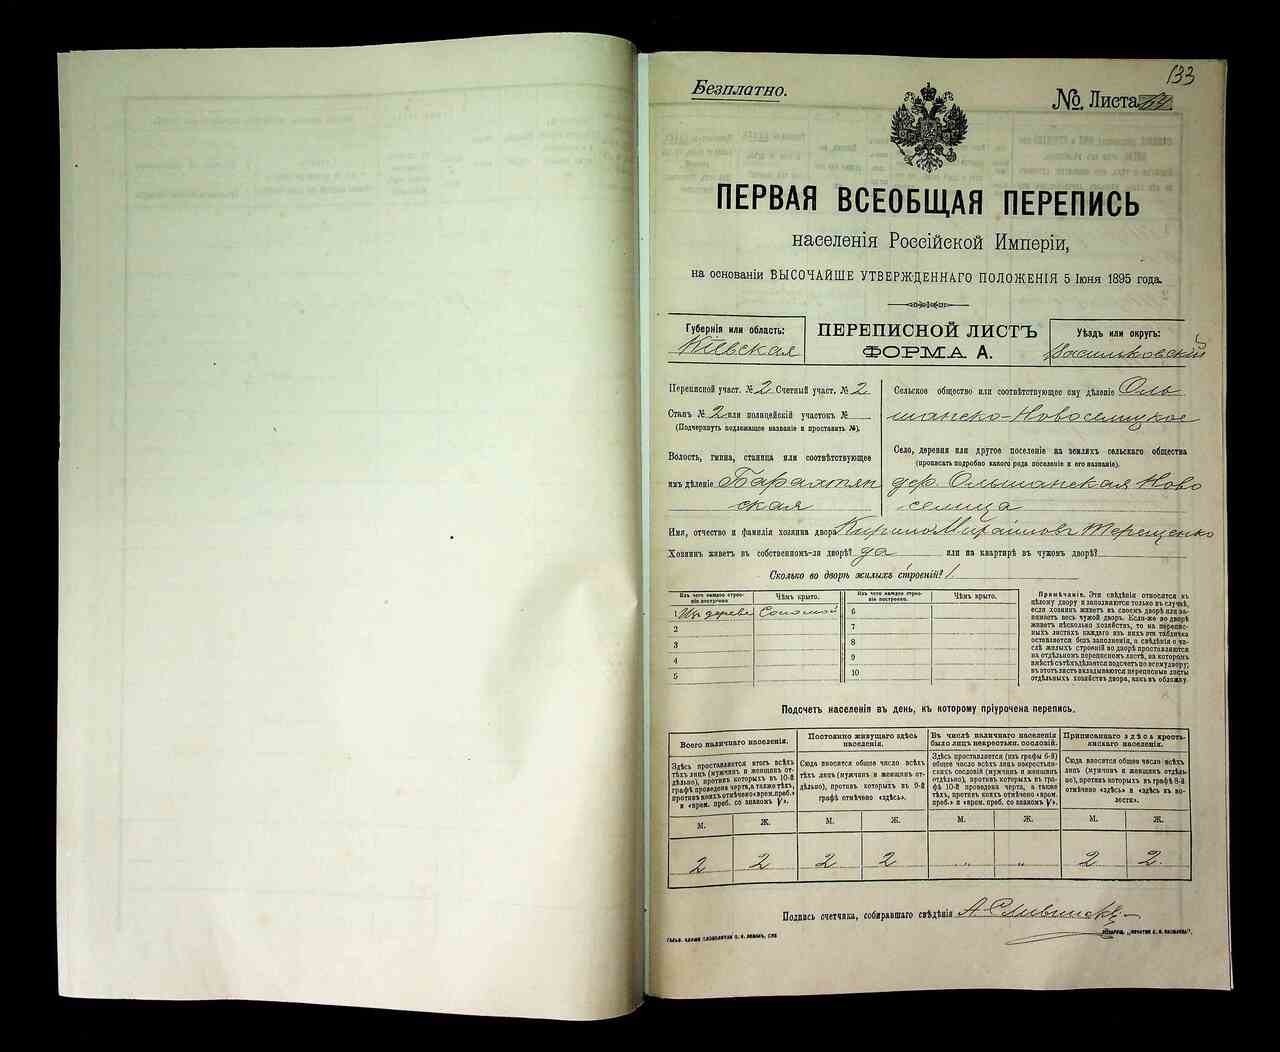 133
Безплатно.
№ Листа
ПЕРВАЯ ВСЕОБЩАЯ ПЕРЕПИСЬ
населенія Россійской Имперіи,
на основаніи ВЫСОЧАЙШЕ УТВЕРЖДЕННАГО ПОЛОЖЕНІЯ 5 Іюня 1895 года.
Губернія или область:
Кіевская
ПЕРЕПИСНОЙ ЛИСТЪ
ФОРМА А.
Уѣздъ или округъ:
Васильковскій
Переписной участ. № 2 Счетный участ. № 2
Станъ № 2 или полицейскій участокъ №
(Подчеркнуть подлежащее названіе и проставить №).
Волость, гмина, станица или соотвѣтствующее
имъ дѣленіе Барахтян
ская
Сельское общество или соотвѣтствующее ему дѣленіе Оль
шанско-Новоселицкое
Село, деревня или другое поселеніе на земляхъ сельскаго общества
(прописать подробно какого рода поселеніе и его названіе).
дер. Ольшанская Ново
селица
Имя, отчество и фамилія хозяина двора Михайловъ Терещенко
Хозяинъ живетъ въ собственномъ-ли дворѣ? да или на квартирѣ въ чужомъ дворѣ?
Сколько во дворѣ жилыхъ строеній? 1.
Изъ чего каждое строе-
ніе построено.
Чѣмъ крыто.
1 Изъ дерева Соломой
2
3
4
5
Изъ чего каждое строе-
ніе построено.
Чѣмъ крыто.
6
7
8
9
10
Примѣчаніе. Эти свѣдѣнія относятся къ
цѣлому двору и заполняются только въ случаѣ,
если хозяинъ живетъ въ своемъ дворѣ или за-
нимаетъ весь чужой дворъ. Если-же во дворѣ
живетъ нѣсколько хозяйствъ, то на перепис-
ныхъ листахъ каждаго изъ нихъ эта табличка
оставляется безъ заполненія, а свѣдѣнія о чи-
слѣ жилыхъ строеній во дворѣ проставляются
на отдѣльномъ переписномъ листѣ, на которомъ
вмѣстѣ съ тѣмъ дѣлается подсчетъ по всему двору;
въ этотъ листъ вкладываются переписные листы
отдѣльныхъ хозяйствъ двора, какъ въ обложку.
Подсчетъ населенія въ день, къ которому пріурочена перепись.
Всего наличнаго населенія.
Здѣсь проставляется итогъ всѣхъ
тѣхъ лицъ (мужчинъ и женщинъ от-
дѣльно), противъ которыхъ въ 10-й
графѣ проведена черта, а также тѣхъ,
противъ коихъ отмѣчено «врем. преб.»
и «врем. преб. со знакомъ V».
Постоянно живущаго здѣсь
населенія.
Сюда вносится общее число всѣхъ
тѣхъ лицъ (мужчинъ и женщинъ от-
дѣльно), противъ которыхъ въ 9-й
графѣ отмѣчено «здѣсь».
Въ числѣ наличнаго населенія
было лицъ некрестьян. сословій.
Здѣсь проставляется (изъ графы 6-й)
общее число всѣхъ лицъ некрестьян-
скихъ сословій (мужчинъ и женщинъ
отдѣльно), противъ которыхъ въ гра-
фѣ 10-й проведена черта, а также
тѣхъ, противъ коихъ отмѣчено «врем.
преб.» и «врем. преб. со знакомъ V».
Приписаннаго здѣсь кресть-
янскаго населенія.
Сюда вносится общее число всѣхъ
лицъ (мужчинъ и женщинъ отдѣль-
но), противъ которыхъ въ графѣ 8-й
отмѣчено «здѣсь» и «здѣсь въ во-
лости».
М. Ж. М. Ж. М. Ж. М. Ж.
2 2 2 2 „ „ 2 2
Подпись счетчика, собиравшаго свѣдѣнія А.